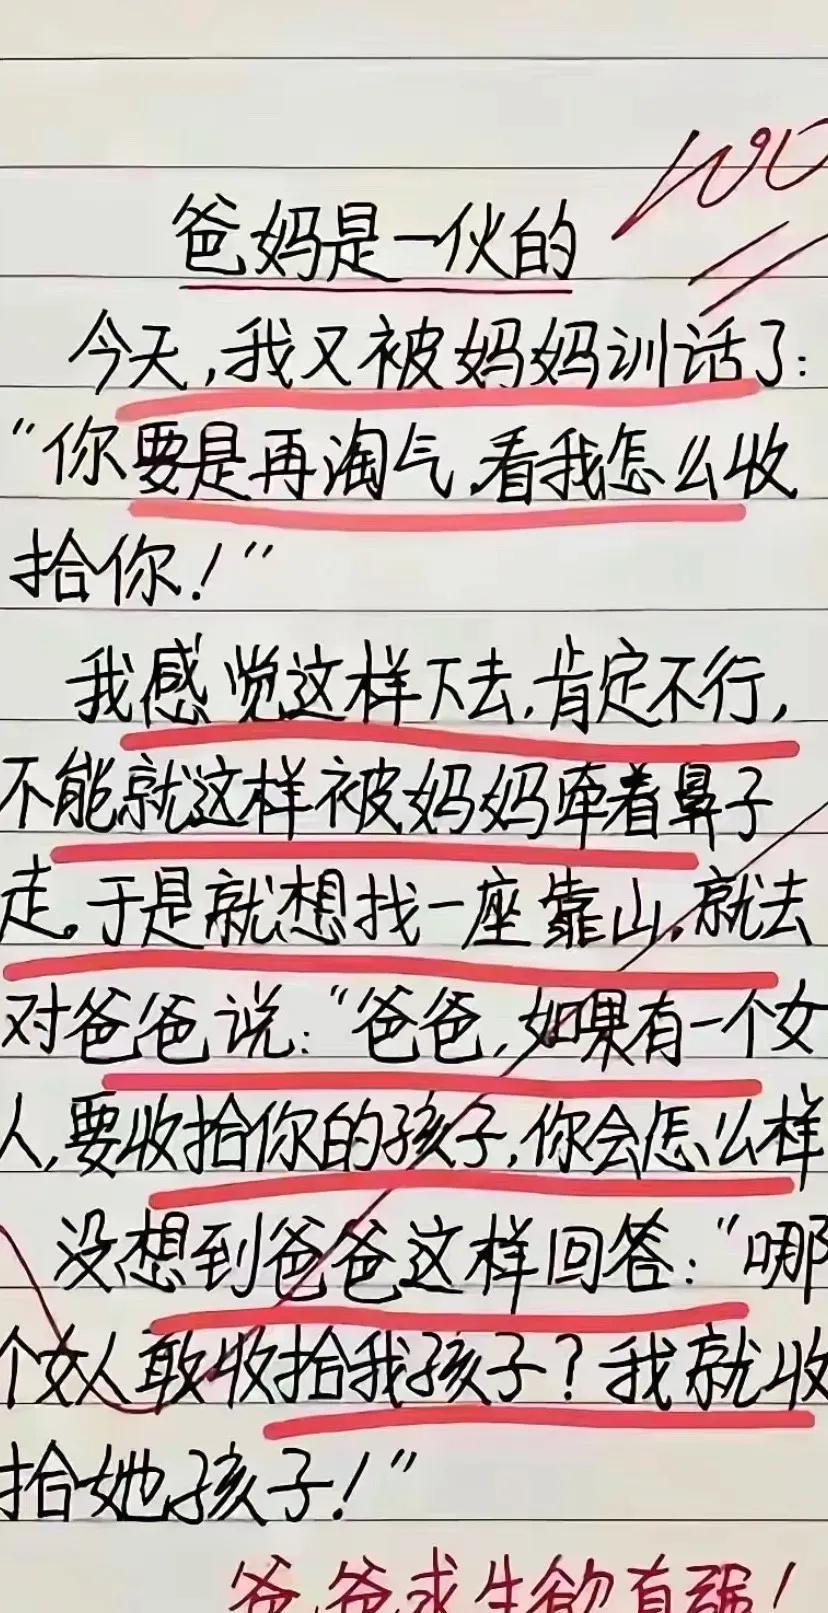 100
爸妈是一伙的
今天,我又被妈妈训话了:
“你要是再淘气,看我怎么收
拾你!”
我感觉这样下去,肯定不行,
不能就这样被妈妈牵着鼻子
走。于是就想找一座靠山,就去
对爸爸说:“爸爸,如果有一个女
人,要收拾你的孩子,你会怎么样
没想到爸爸这样回答:“哪
个女人敢收拾我孩子?我就收
拾她孩子!”
爸爸求生欲真强!